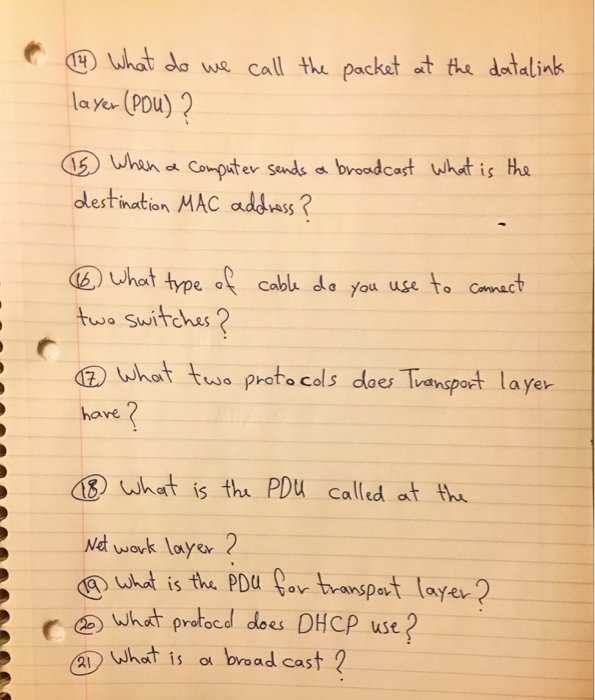 14 What do we call the packet at the datalink
layer (PDU) ?
15 When a computer sends a broadcast what is the
destination MAC address ?
16 What type of cable do you use to connect
two switches ?
17 What two protocols does Transport layer
have ?
18 What is the PDU called at the
Network layer ?
19 What is the PDU for transport layer ?
20 What protocol does DHCP use ?
21 What is a broadcast ?